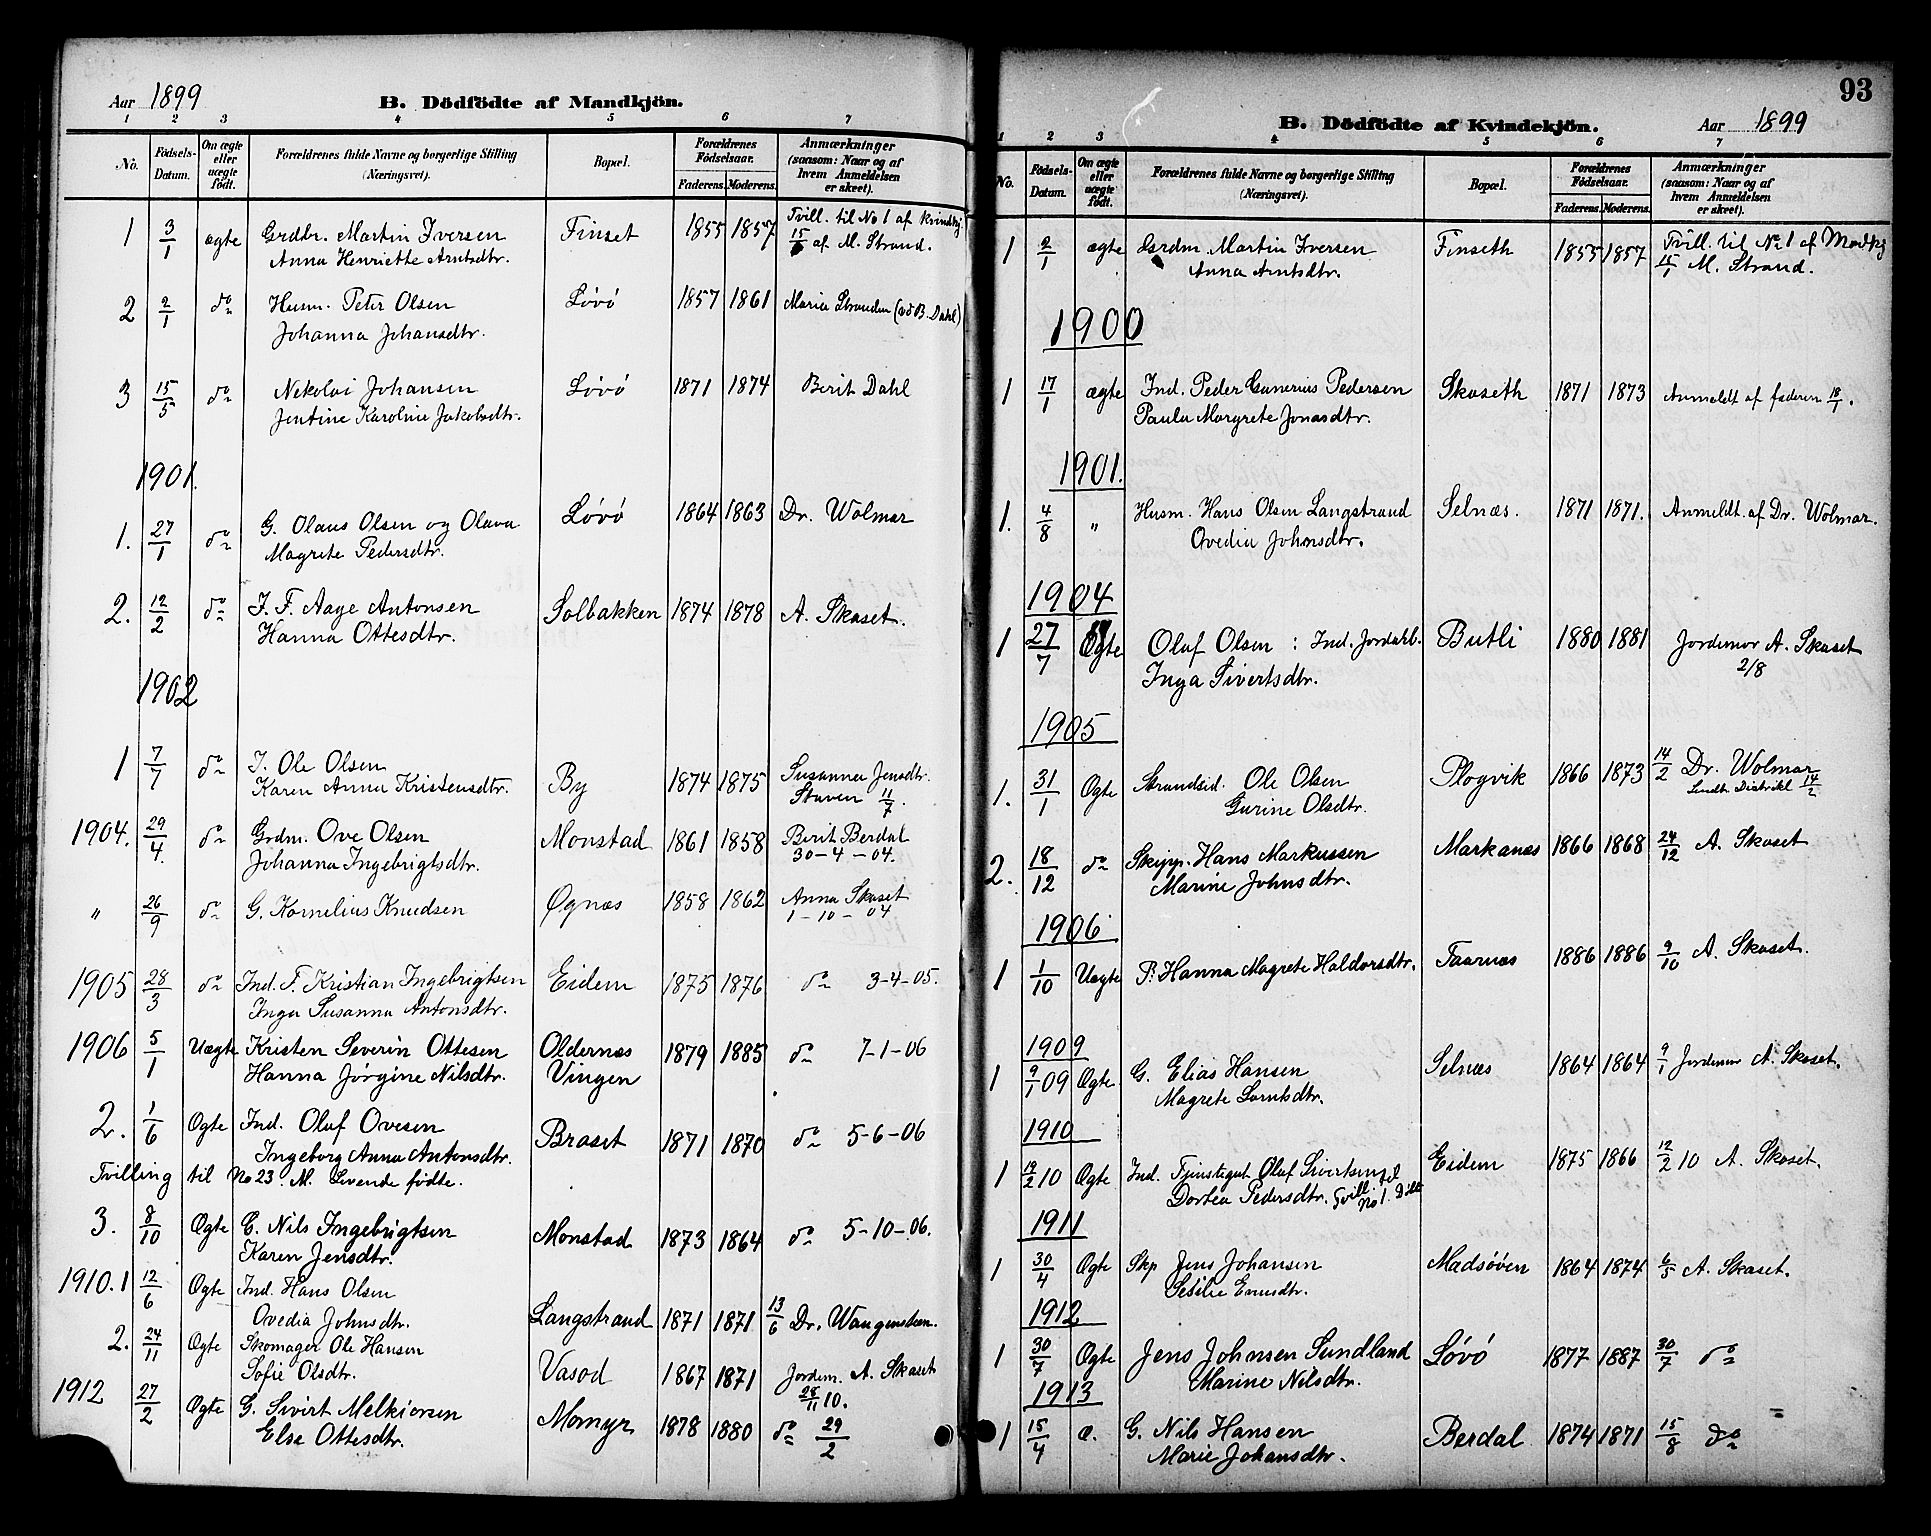 Aar 1899 B. Dödfödte af Mandkjön.
1 2 3 4 5 6 7
No. Födsels-Datum. Om ægte eller uægte födt. Forældrenes fulde Navne og borgerlige Stilling (Næringsvei). Bopæl. Forældrenes Födselsaar. Faderens. Moderens. Anmærkninger (saasom: Naar og af hvem Anmeldelsen er skeet).
1 3/1 ægte Grdbr. Martin Iversen Finset 1855 1857 Tvill. til No 1 af Kvindekj.
Anna Henriette Arntsdtr. 15/1 af M. Strand.
2 2/1 do Husm. Peter Olsen Løvø 1857 1861 Maria Stranden (v B. Dahl)
Johanna Johansdtr.
3 15/5 do Nekolai Johansen Løvø 1871 1874 Berit Dahl
Jentine Karoline Jakobsdtr.
1901.
1. 27/1 do G. Olaus Olsen og Olava Løvø 1864 1863 Dr. Wolmar
Magrete Pedersdtr.
2. 12/2 do I. F. Aage Antonsen Solbakken 1874 1878 A. Skaset.
Hanna Ottesdtr.
1902
1 7/7 do I. Ole Olsen By 1874 1875 Susanna Jensdtr.
Karen Anna Kristensdtr. Staven 11/7.
1904. 29/4. do Grdm. Ove Olsen Monstad 1861 1858 Berit Berdal
Johanna Ingebrigtsdtr. 30-4-04.
" 26/9 do G. Kornelius Knudsen Øgnæs 1858 1862 Anna Skaset
1-10-04
1905 28/3 do Ind. F. Kristian Ingebrigtsen Eidem 1875 1876 do 3-4-05.
Inga Susanna Antonsdtr.
1906 5/1 Uægte Kristen Severin Ottesen Oldernæs 1879 1885 do 7-1-06
Hanna Jørgine Nilsdtr. Vingen
2. 1/6 Ægte Ind. Oluf Ovesen Braset 1871 1870 do 5-6-06
Ingeborg Anna Antonsdtr.
Tvilling til No 23. M. Levende fødte.
3. 8/10 Ægte G. Nils Ingebrigtsen Monstad 1873 1864 do 5-10-06.
Karen Jensdtr.
1910. 1 12/6 Ægte Ind. Hans Olsen Langstrand 1871 1871 13/6 Dr. Wangensteen.
Ovedia Johnsdtr.
2. 24/11 Ægte Skomager Ole Hansen Vasod 1867 1871 Jordem. A. Skaset
Sofie Olsdtr. 28/11 10.
1912 27/2 Ægte G. Sivirt Melkiorsen Momyr 1878 1880 do 29/2
Else Ottesdtr.
93
B. Dödfödte af Kvindekjön. Aar 1899
1 2 3 4 5 6 7
No. Födsels-Datum. Om ægte eller uægte födt. Forældrenes fulde Navne og borgerlige Stilling (Næringsvei). Bopæl. Forældrenes Födselsaar. Faderens. Moderens. Anmærkninger (saasom: Naar og af hvem Anmeldelsen er skeet).
1 2/1 ægte Gardm. Martin Iversen Finseth 1855 1857 Tvill. til No 1 af Madkj
Anna Arntsdtr. 15/1 M. Strand.
1900
1 17/1 ægte Ind. Peder Gunerius Pedersen Skaseth 1871 1873 Anmeldt af faderen 18/1.
Paula Margrete Jonasdtr.
1901.
1. 4/8 " Husm. Hans Olsen Langstrand Selnæs. 1871 1871. Anmeldt af Dr. Wolmar.
Ovedia Johnsdtr.
1904
1 27/7 Ægte Oluf Olsen : Ind. Jordarb. Butli 1880 1881 Jordemor A. Skaset
Inga Sivertsdtr. 2/8
1905
1. 31/1 Ægte Strandsid. Ole Olsen Plogvik 1866 1873 14/2 Dr. Wolmar
Gurine Olsdtr. Sendt Distrikl 14/2
2. 18/12 do Skipp. Hans Markussen Markanæs 1866 1868 24/12 A. Skaset
Marine Johnsdtr.
1906
1 1/10 Uægte P. Hanna Magrete Haldorsdtr. Taarnæs 1886 1886 9/10 A. Skaset.
1909
1 9/1 09 Ægte G. Elias Hansen Selnæs 1864 1864 9/1 Jordemor A. Skaset.
Magrete Lorntsdtr.
1910
1 12/2 10 Ægte Ind. Tjenstegut Oluf Sivertsen Eidem 1875 1866 12/2 10 A. Skaset.
Dortea Pedersdtr. Tvill. til No 1.
1911
1 30/4 Ægte Skp Jens Johansen Madsøven 1864 1874 6/5 A. Skaset.
Sesilie Enusdtr.
1912
1 30/7 Ægte Jens Johnsen Sundland Løvø 1877 1887 30/7 do
Marine Nilsdtr.
1913
1 15/4 Æ. G. Nils Hansen Berdal 1874 1871 15/8 do
Marie Johansdtr.